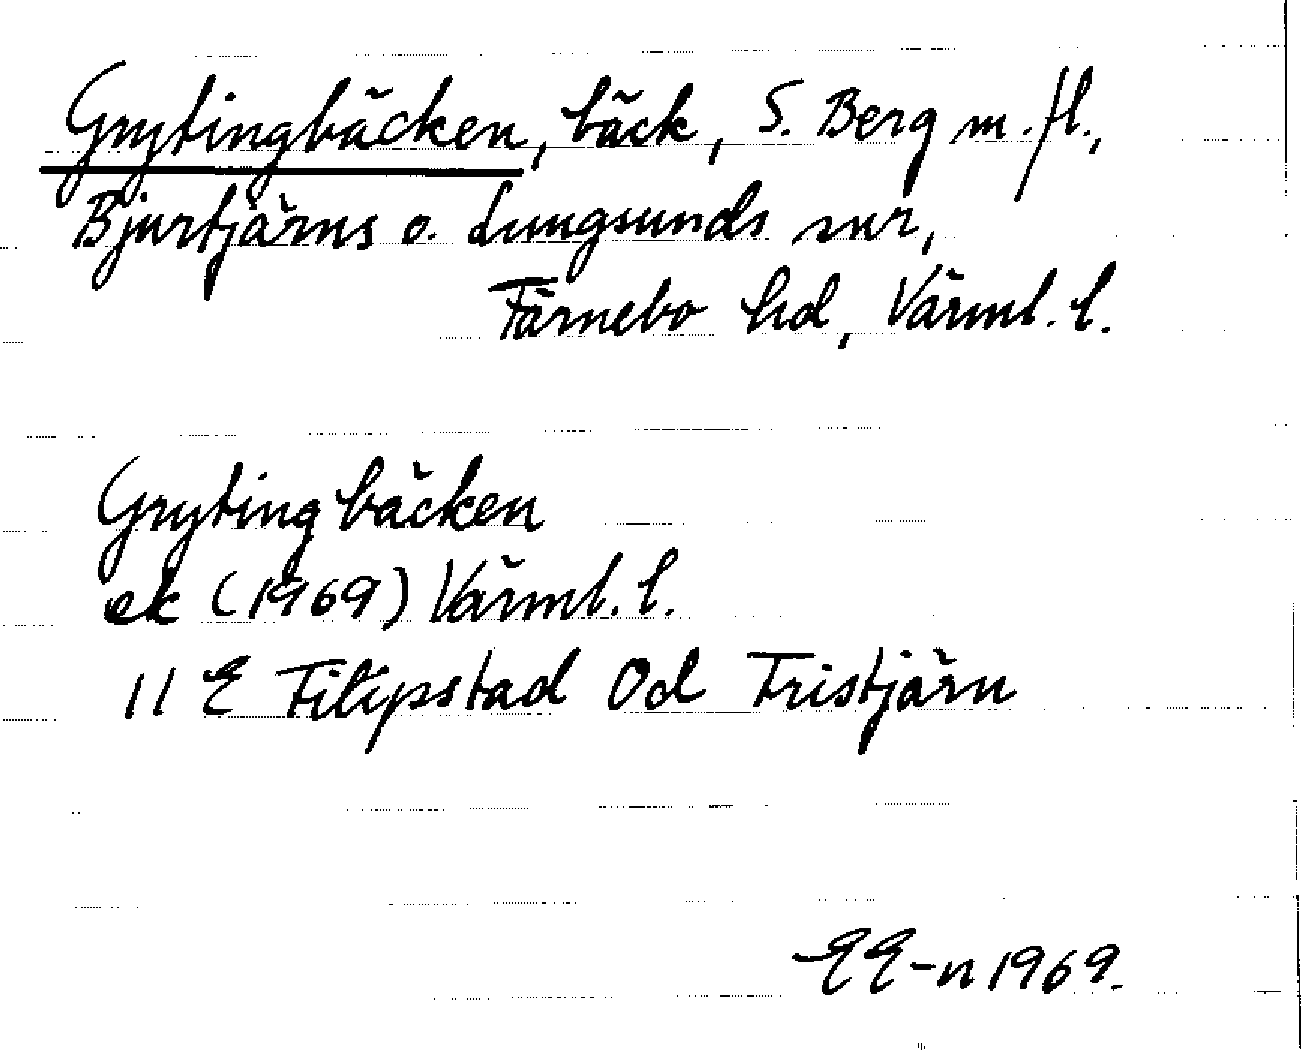 Grytingbäcken, bäck, S. Berg m. fl.,
Bjurtjärns o. Lungsunds snr,
Färnebo hd, Värml. l.
Gryting bäcken
ek (1969) Värml. l.
11 E Filipstad Od Tristjärn
EE-n 1969.